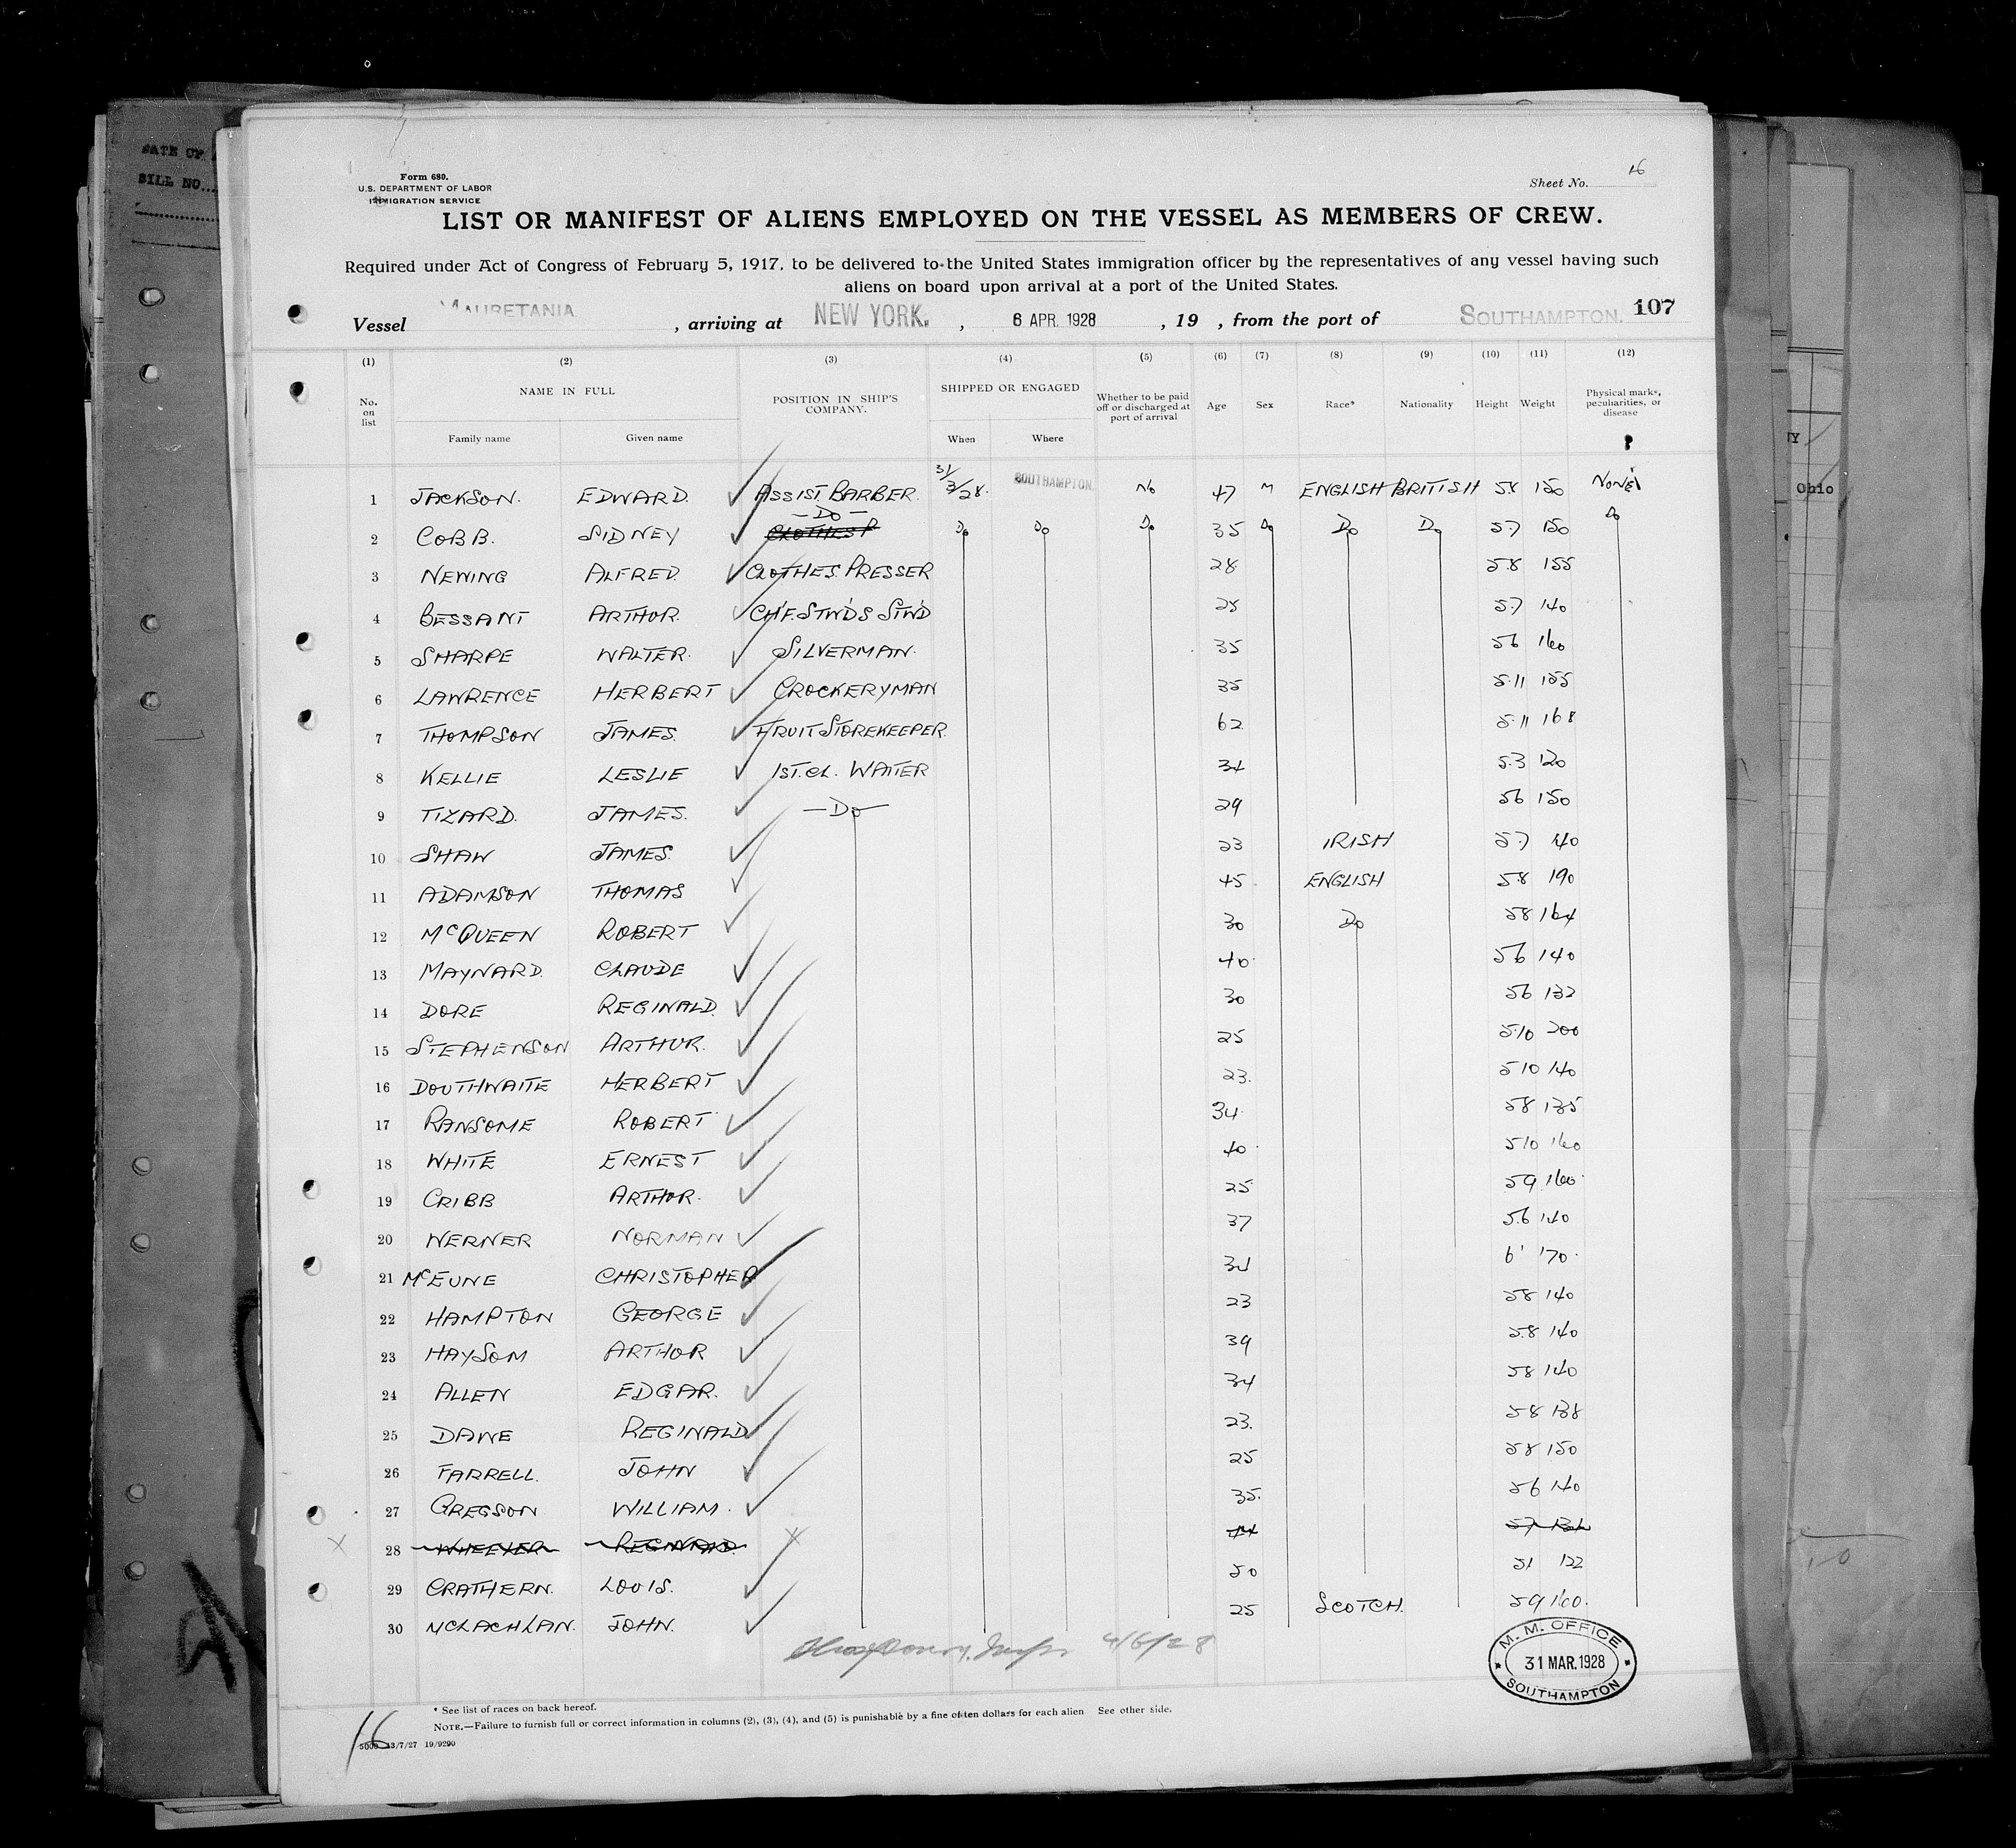 DATE OF
BILL NO...
Form 680.
U.S. DEPARTMENT OF LABOR
IMMIGRATION SERVICE
Sheet No. 16
LIST OR MANIFEST OF ALIENS EMPLOYED ON THE VESSEL AS MEMBERS OF CREW.
Required under Act of Congress of February 5, 1917, to be delivered to the United States immigration officer by the representatives of any vessel having such
aliens on board upon arrival at a port of the United States.
107
Vessel MAURETANIA , arriving at NEW YORK. , 6 APR. 1928 , 19 , from the port of SOUTHAMPTON.
(1) (2) (3) (4) (5) (6) (7) (8) (9) (10) (11) (12)
No. on list
NAME IN FULL
Family name Given name
POSITION IN SHIP'S COMPANY.
SHIPPED OR ENGAGED
When Where
Whether to be paid off or discharged at port of arrival
Age Sex Race* Nationality Height Weight
Physical marks, peculiarities, or disease
1 JACKSON. EDWARD. ASSIST. BARBER. 31/3/28. SOUTHAMPTON. No 47 M ENGLISH BRITISH 5.8 150 NONE
2 COBB. SIDNEY —Do— CLOTHES P Do Do Do 35 Do Do Do 5.7 150 Do
3 NEWING ALFRED. CLOTHES. PRESSER 28 5.8 155
4 BESSANT ARTHUR. CH'F. STW'DS STW'D 25 5.7 140
5 SHARPE WALTER. SILVERMAN. 35 56 160
6 LAWRENCE HERBERT CROCKERYMAN 35 5.11 155
7 THOMPSON JAMES. FRUIT STOREKEEPER. 62 5.11 168
8 KELLIE LESLIE 1ST. CL. WAITER 34 5.3 120
9 TIZARD. JAMES. —Do— 29 56 150
10 SHAW JAMES. 23 IRISH 5.7 140
11 ADAMSON THOMAS 45 ENGLISH 58 190
12 McQUEEN ROBERT 30 Do 58 164
13 MAYNARD. CLAUDE 40 56 140
14 DORE REGINALD. 30 56 132
15 STEPHENSON ARTHUR. 25 5.10 200
16 DOUTHWAITE HERBERT 23. 510 140
17 RANSOME ROBERT 34 58 135
18 WHITE ERNEST 40 510 160
19 CRIBB ARTHUR. 25 59 160
20 WERNER NORMAN 37 5.6 140
21 McEUNE CHRISTOPHER 6' 170
22 HAMPTON GEORGE 23 58 140
23 HAYSOM ARTHUR 39 5.8 140
24 ALLEN EDGAR. 34 58 140
25 DAWE REGINALD 23. 58 138
26 FARRELL. JOHN 25 58 150
27 GREGSON WILLIAM. 35. 56 140
28 WHEELER REGINALD. 44 57
29 CRATHERN. LOUIS. 50 51 122
30 MCLACHLAN. JOHN. 25 SCOTCH. 59 160.
4/6/28
M. M. OFFICE
31 MAR. 1928
SOUTHAMPTON
* See list of races on back hereof.
NOTE.—Failure to furnish full or correct information in columns (2), (3), (4), and (5) is punishable by a fine of ten dollars for each alien See other side.
16
5000 13/7/27 19/9290
Ohio